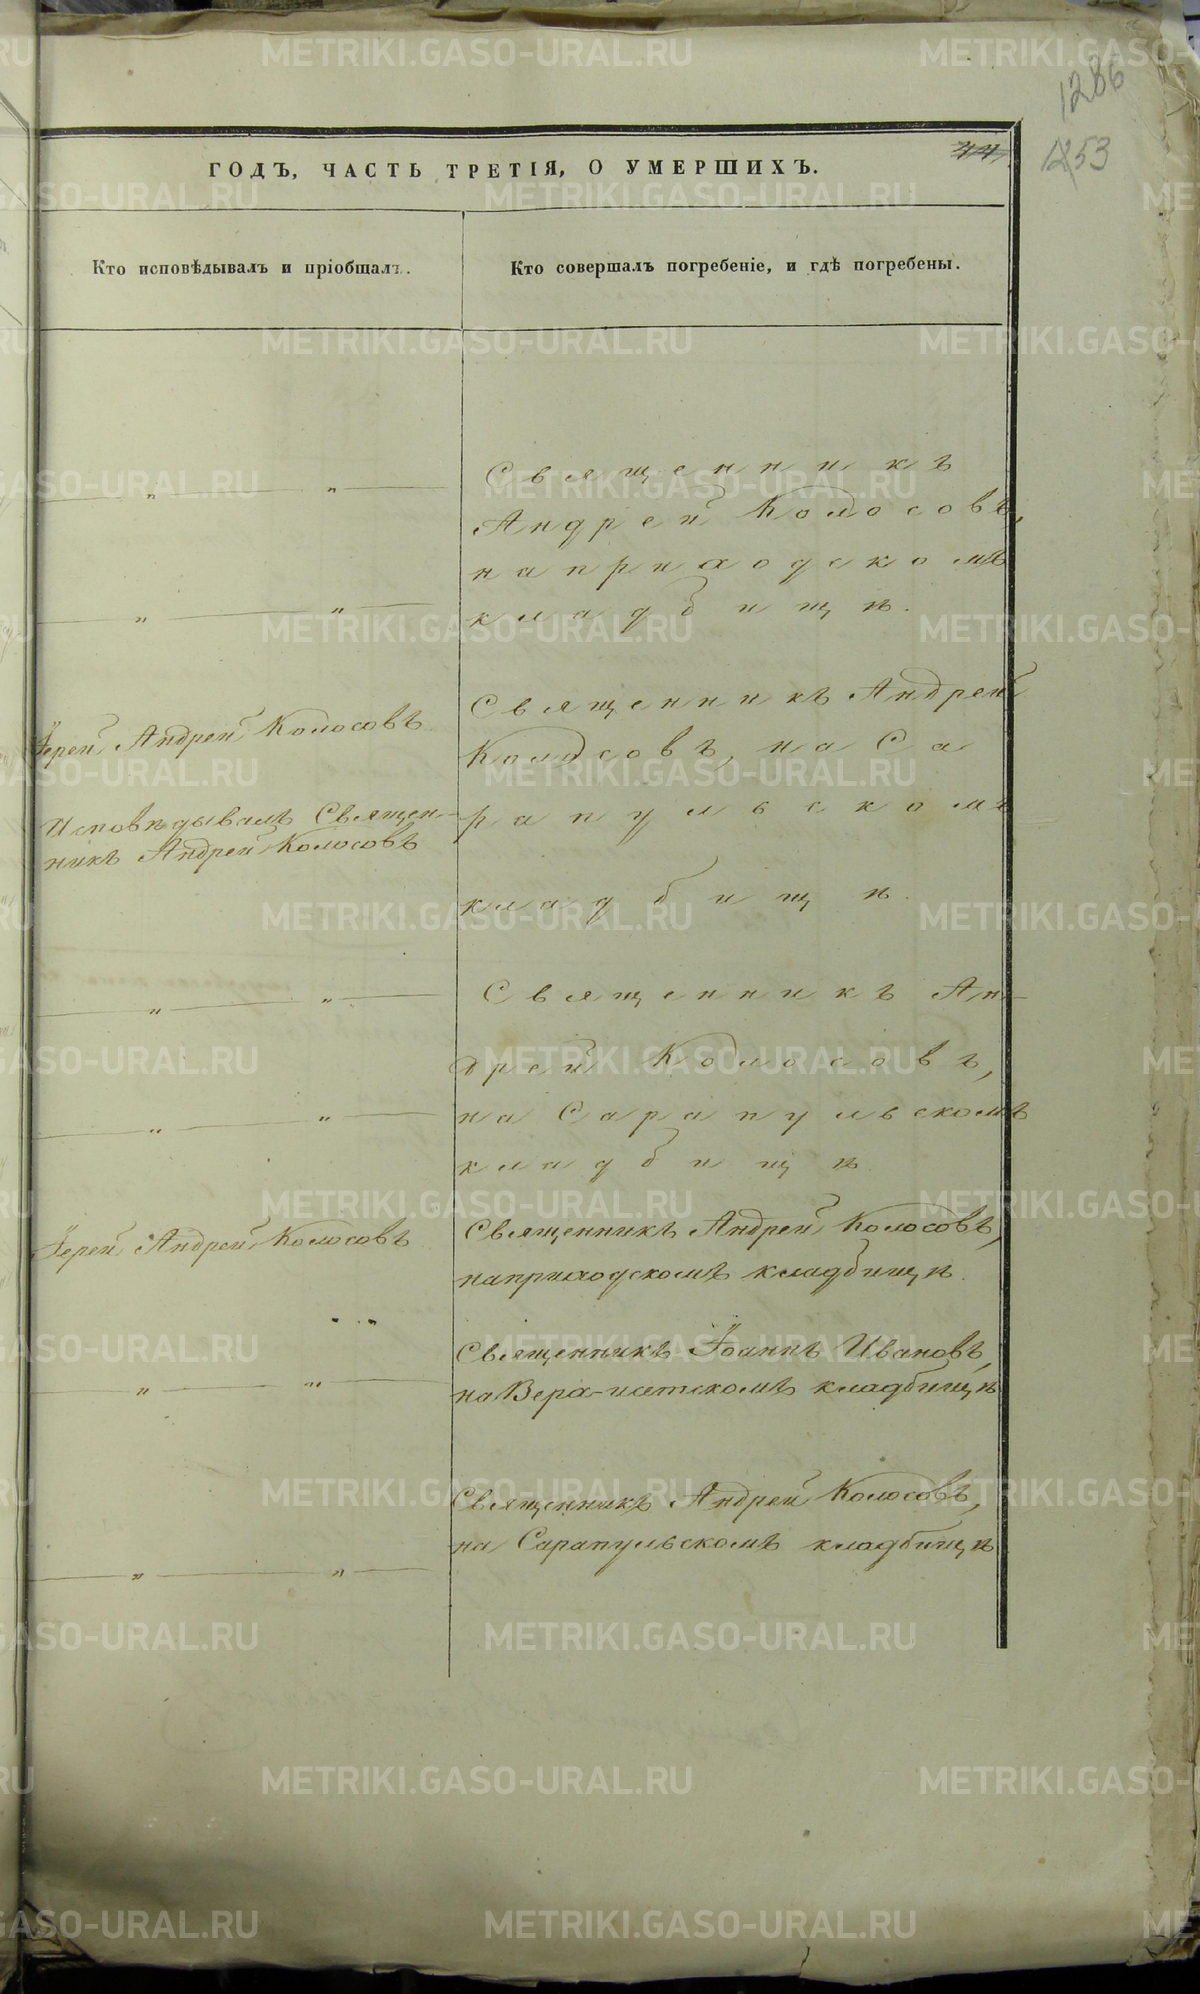 1286
44
1253
ГОДЪ, ЧАСТЬ ТРЕТІЯ, О УМЕРШИХЪ.
Кто исповѣдывалъ и пріобщалъ.
Кто совершалъ погребеніе, и гдѣ погребены.
Священникъ
Андрей Колосовъ,
на приходскомъ
кладбищѣ.
Іерей Андрей Колосовъ
Исповѣдывалъ Священ-
никъ Андрей Колосовъ
Священникъ Андрей
Колосовъ, на Са
рапульскомъ
кладбищѣ.
Священникъ Ан-
дрей Колосовъ,
на Сарапульскомъ
кладбищѣ
Іерей Андрей Колосовъ
Священникъ Андрей Колосовъ,
на приходскомъ кладбищѣ.
Священникъ Іоаннъ Ивановъ,
на Верх-исетскомъ кладбищѣ
Священникъ Андрей Колосовъ,
на Сарапульскомъ кладбищѣ
METRIKI.GASO-URAL.RU